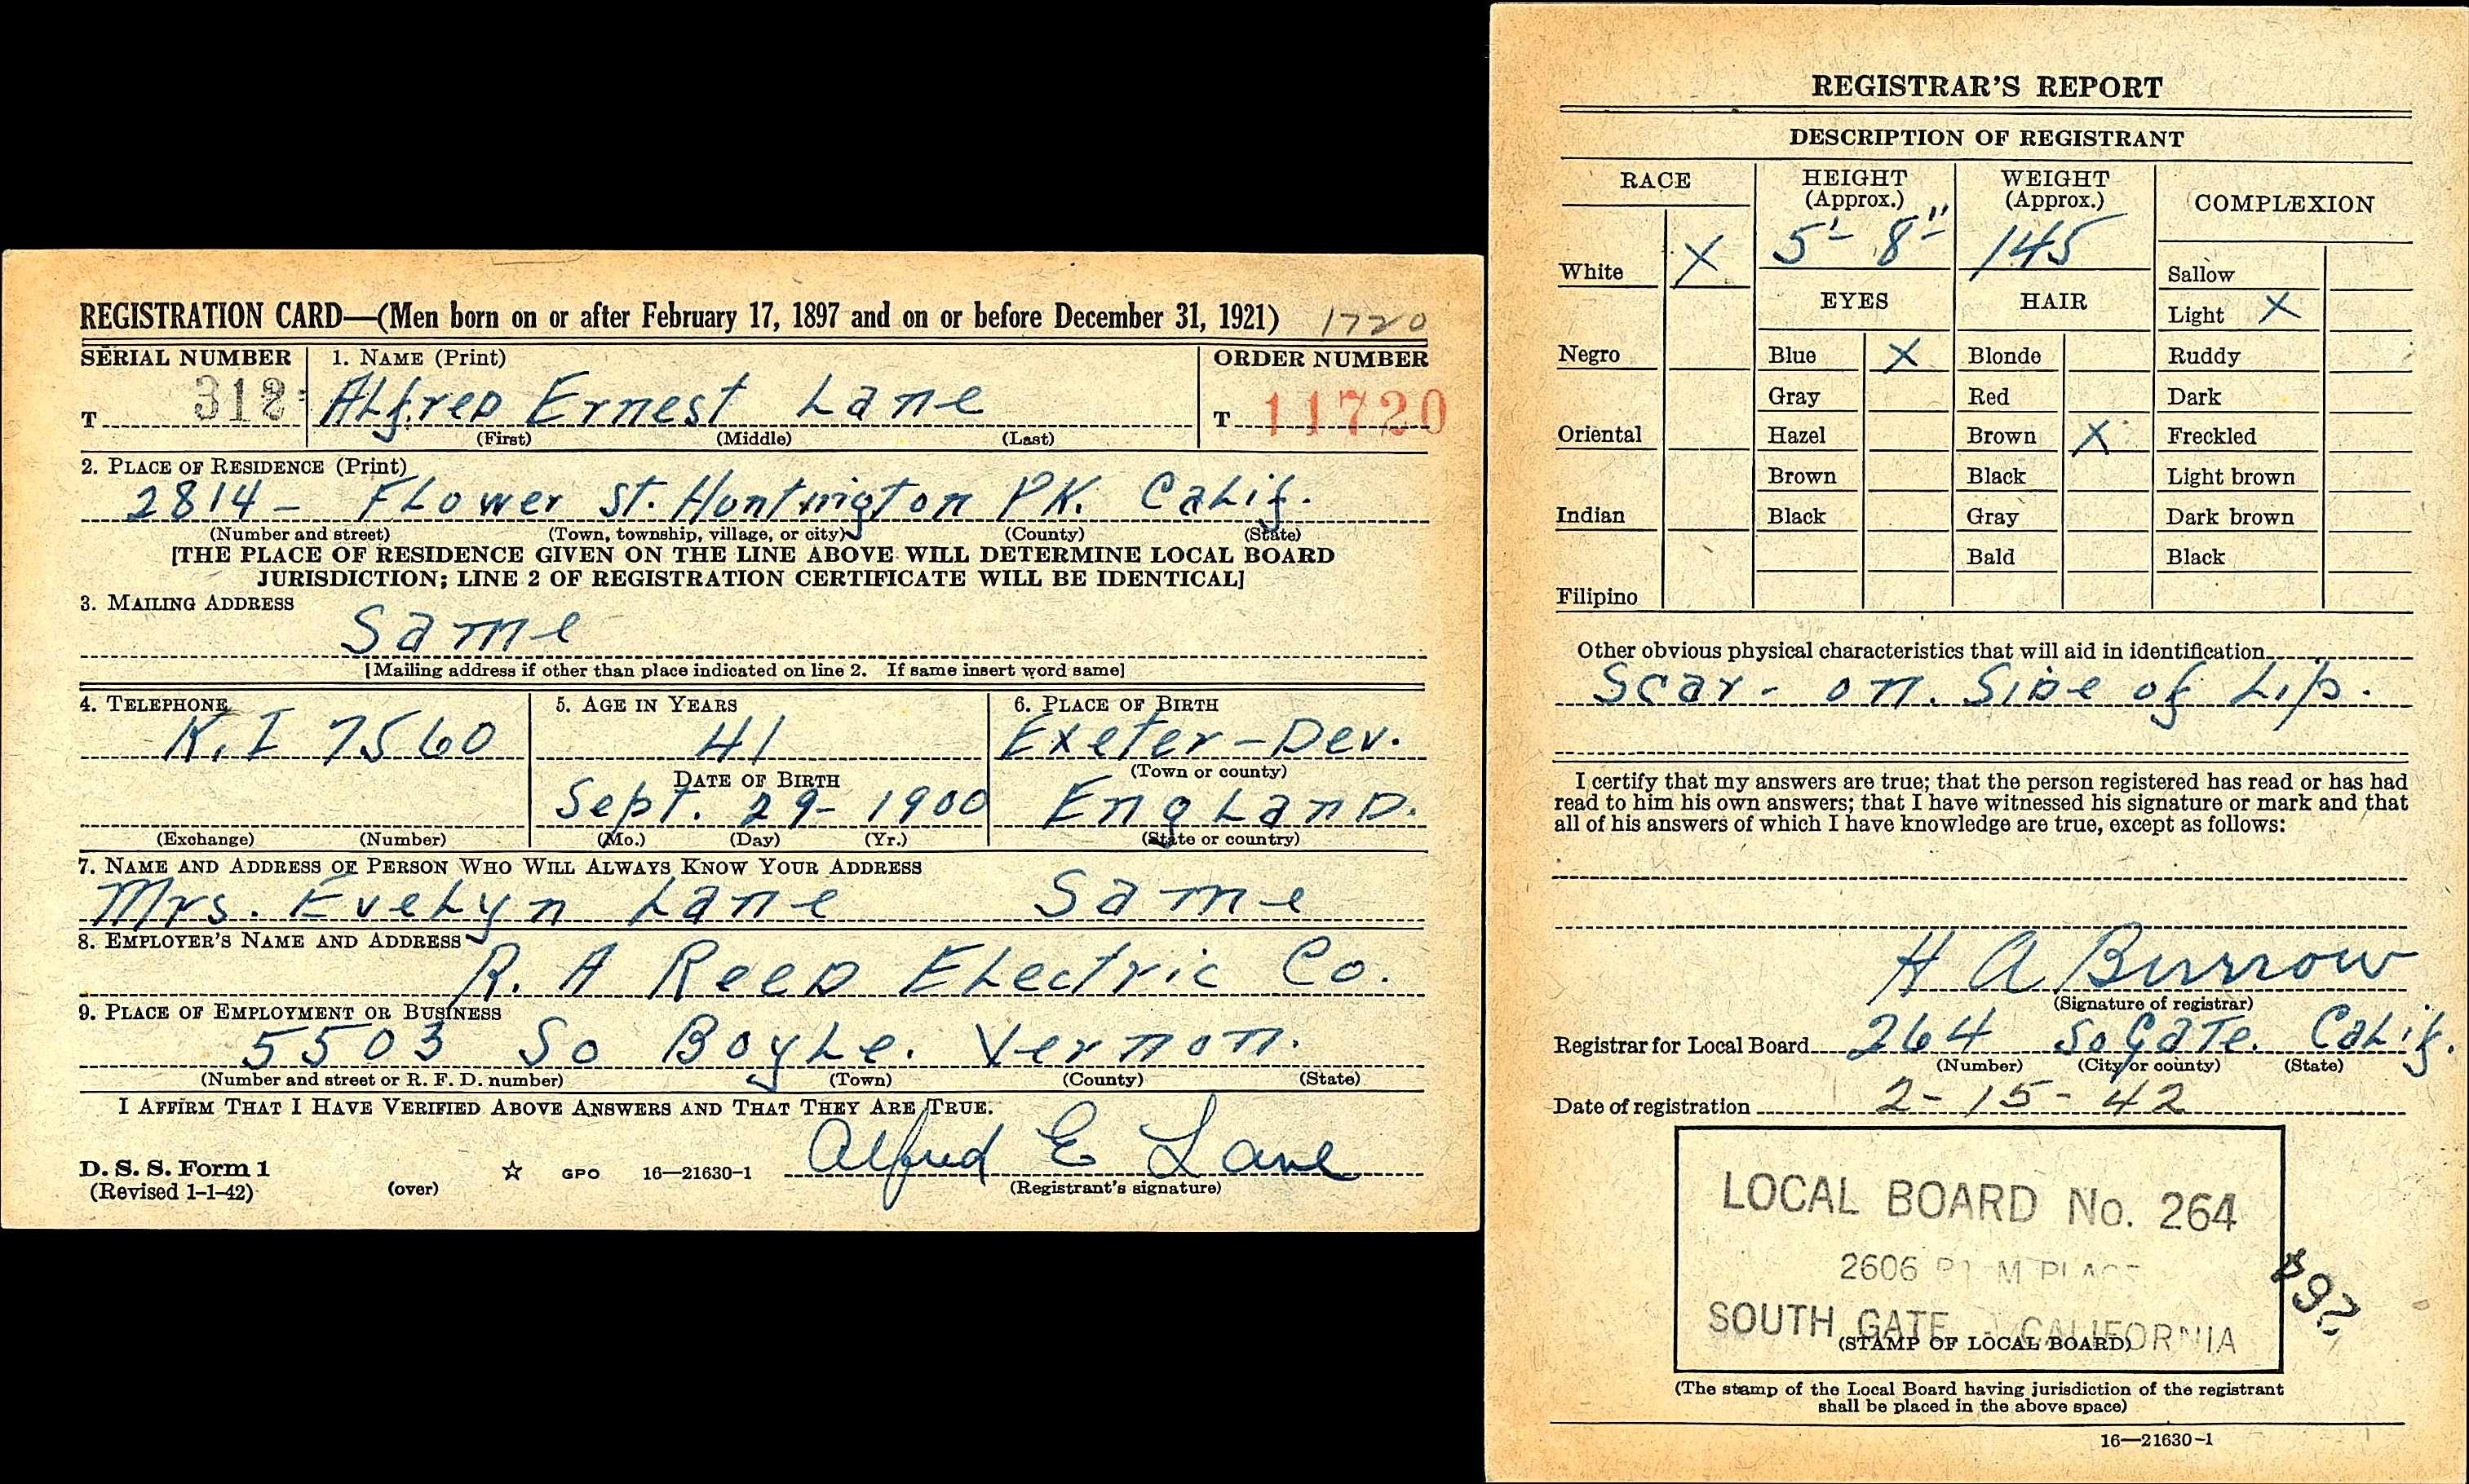 REGISTRATION CARD—(Men born on or after February 17, 1897 and on or before December 31, 1921) 1720
SERIAL NUMBER 1. NAME (Print) ORDER NUMBER
T 312 ALfreD Ernest Lane T 11720
(First) (Middle) (Last)
2. PLACE OF RESIDENCE (Print)
2814 - FLower St. Huntington PK. CaLif.
(Number and street) (Town, township, village, or city) (County) (State)
[THE PLACE OF RESIDENCE GIVEN ON THE LINE ABOVE WILL DETERMINE LOCAL BOARD
JURISDICTION; LINE 2 OF REGISTRATION CERTIFICATE WILL BE IDENTICAL]
3. MAILING ADDRESS
Same
[Mailing address if other than place indicated on line 2. If same insert word same]
4. TELEPHONE 5. AGE IN YEARS 6. PLACE OF BIRTH
K.I 7560 41 Exeter-Dev.
DATE OF BIRTH (Town or county)
Sept. 29- 1900 EngLanD.
(Exchange) (Number) (Mo.) (Day) (Yr.) (State or country)
7. NAME AND ADDRESS OF PERSON WHO WILL ALWAYS KNOW YOUR ADDRESS
Mrs. EveLyn Lane Same
8. EMPLOYER'S NAME AND ADDRESS
R. A ReeD ELectric Co.
9. PLACE OF EMPLOYMENT OR BUSINESS
5503 So BoyLe. Vernon.
(Number and street or R. F. D. number) (Town) (County) (State)
I AFFIRM THAT I HAVE VERIFIED ABOVE ANSWERS AND THAT THEY ARE TRUE.
Alfred E Lane
D. S. S. Form 1
(Revised 1-1-42) (over) ☆ GPO 16—21630-1 (Registrant's signature)
REGISTRAR'S REPORT
DESCRIPTION OF REGISTRANT
RACE HEIGHT (Approx.) WEIGHT (Approx.) COMPLEXION
White X 5'- 8" 145 Sallow
EYES HAIR Light X
Negro Blue X Blonde Ruddy
Gray Red Dark
Oriental Hazel Brown X Freckled
Brown Black Light brown
Indian Black Gray Dark brown
Bald Black
Filipino
Other obvious physical characteristics that will aid in identification
Scar - on. SiDe of Lip.
I certify that my answers are true; that the person registered has read or has had
read to him his own answers; that I have witnessed his signature or mark and that
all of his answers of which I have knowledge are true, except as follows:
H A Burrow
(Signature of registrar)
Registrar for Local Board 264 So GaTe. CaLif.
(Number) (City or county) (State)
Date of registration 2-15-42
LOCAL BOARD No. 264
2606
SOUTH GATE - CALIFORNIA
(STAMP OF LOCAL BOARD)
(The stamp of the Local Board having jurisdiction of the registrant
shall be placed in the above space)
16—21630-1